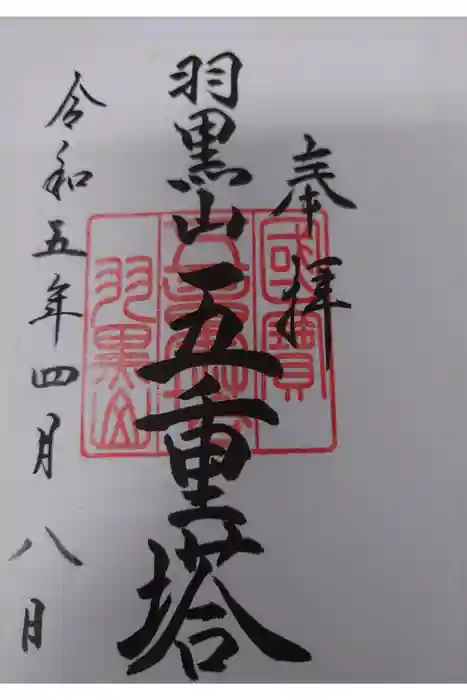 奉拝
羽黒山五重塔
令和五年四月八月
國寶
五重塔
羽黒山